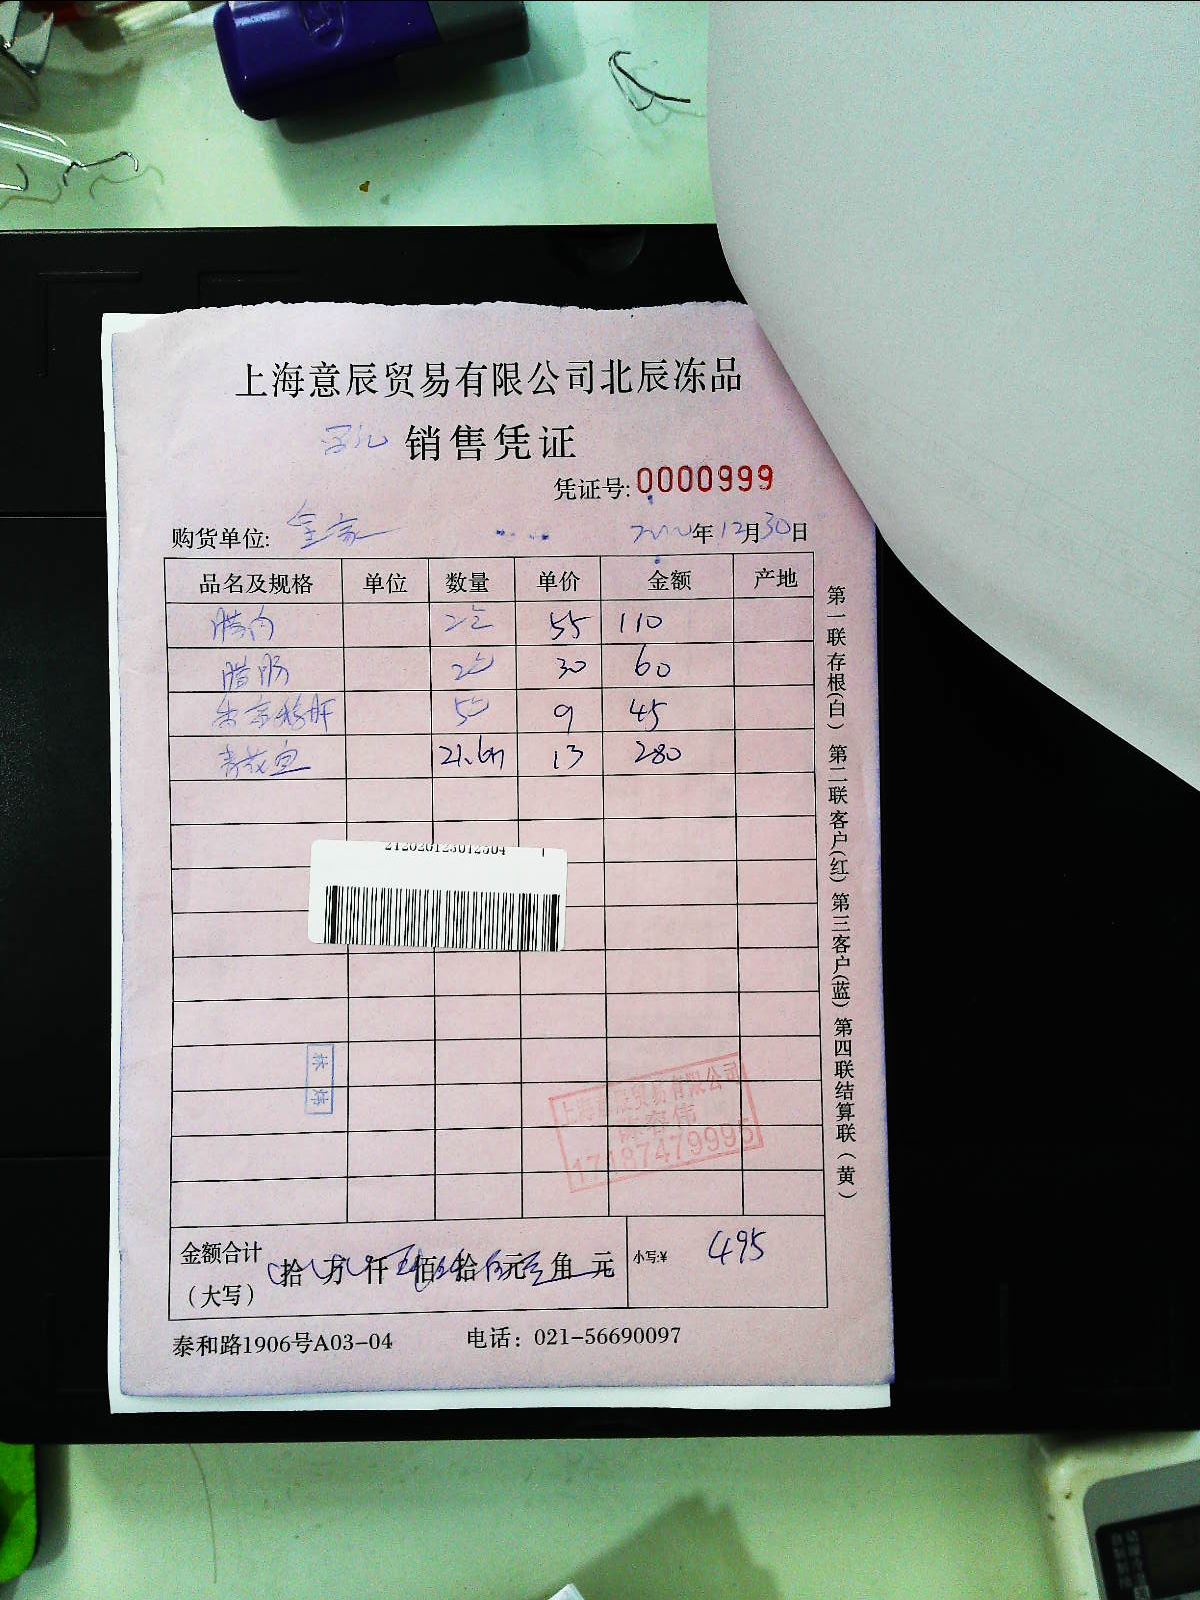 上海意辰贸易有限公司北辰冻品
销售凭证
凭证号: 0000999
购货单位: 全家 年12月30日
品名及规格 单位 数量 单价 金额 产地
腊肉 2包 55 110
腊肠 2包 30 60
5包 9 45
青花鱼 21.6斤 13 280
212020123012504 1
林
上海意辰贸易有限公司
容伟
17187479995
金额合计
（大写）
拾 万 仟 佰 拾 元 角 元
小写:¥ 495
泰和路1906号A03-04 电话：021-56690097
第一联存根(白) 第二联客户(红) 第三客户(蓝) 第四联结算联（黄）